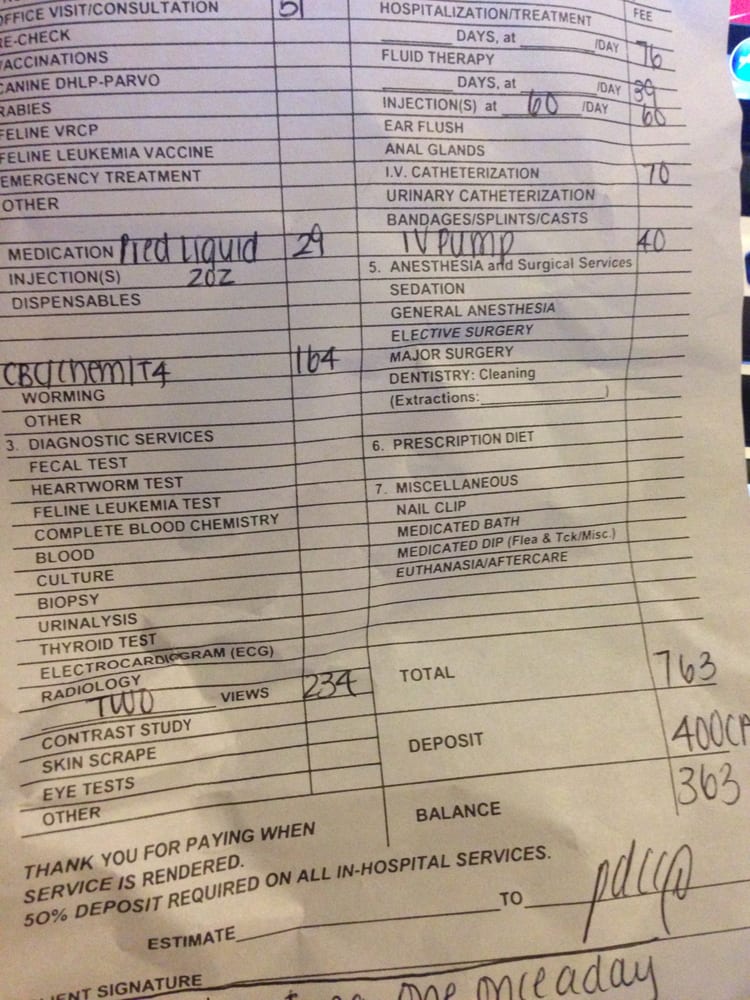 OFFICE VISIT/CONSULTATION 51
RE-CHECK
VACCINATIONS
CANINE DHLP-PARVO
RABIES
FELINE VRCP
FELINE LEUKEMIA VACCINE
EMERGENCY TREATMENT
OTHER
MEDICATION Pred Liquid 29
INJECTION(S) 2oz
DISPENSABLES
CBC/Chem/T4 164
WORMING
OTHER
3. DIAGNOSTIC SERVICES
FECAL TEST
HEARTWORM TEST
FELINE LEUKEMIA TEST
COMPLETE BLOOD CHEMISTRY
BLOOD
CULTURE
BIOPSY
URINALYSIS
THYROID TEST
ELECTROCARDIOGRAM (ECG)
RADIOLOGY
TWO VIEWS 234
CONTRAST STUDY
SKIN SCRAPE
EYE TESTS
OTHER
HOSPITALIZATION/TREATMENT FEE
DAYS, at /DAY 76
FLUID THERAPY
DAYS, at /DAY 39
INJECTION(S) at 60 /DAY 60
EAR FLUSH
ANAL GLANDS
I.V. CATHETERIZATION 70
URINARY CATHETERIZATION
BANDAGES/SPLINTS/CASTS
IV PUMP 40
5. ANESTHESIA and Surgical Services
SEDATION
GENERAL ANESTHESIA
ELECTIVE SURGERY
MAJOR SURGERY
DENTISTRY: Cleaning
(Extractions: )
6. PRESCRIPTION DIET
7. MISCELLANEOUS
NAIL CLIP
MEDICATED BATH
MEDICATED DIP (Flea & Tck/Misc.)
EUTHANASIA/AFTERCARE
TOTAL 763
DEPOSIT 400
BALANCE 363
THANK YOU FOR PAYING WHEN
SERVICE IS RENDERED.
50% DEPOSIT REQUIRED ON ALL IN-HOSPITAL SERVICES.
ESTIMATE TO
CLIENT SIGNATURE
one once a day